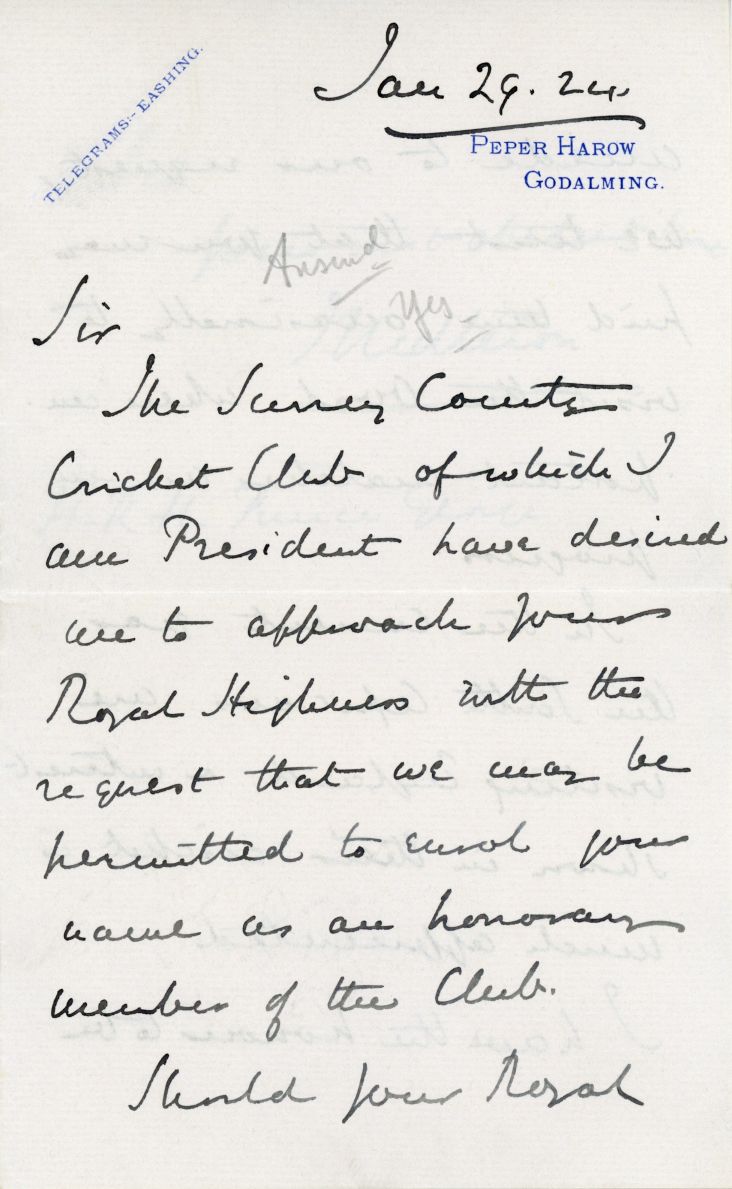 TELEGRAMS:- EASHING.
Jan 29. 24.
PEPER HAROW
GODALMING.
Answd
Yes
Sir
The Surrey County
Cricket Club of which I
am President have desired
me to approach your
Royal Highness with the
request that we may be
permitted to enrol your
name as an honorary
member of the Club.
Should your Royal